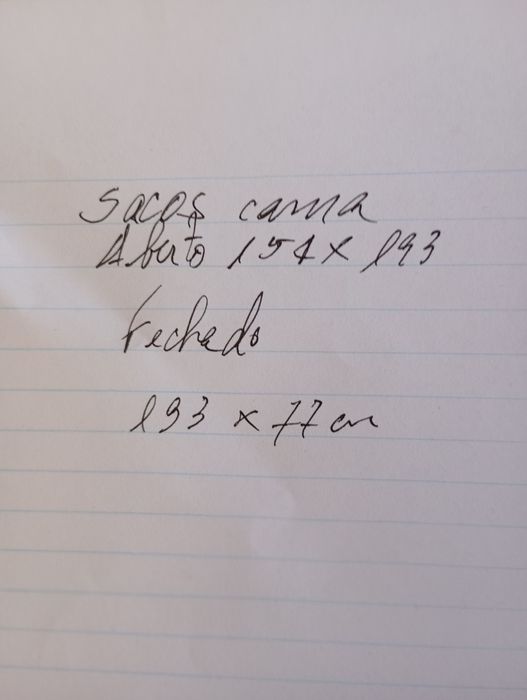 Sacos cama
Aberto 154 x 193
Fechado
193 x 77 cm